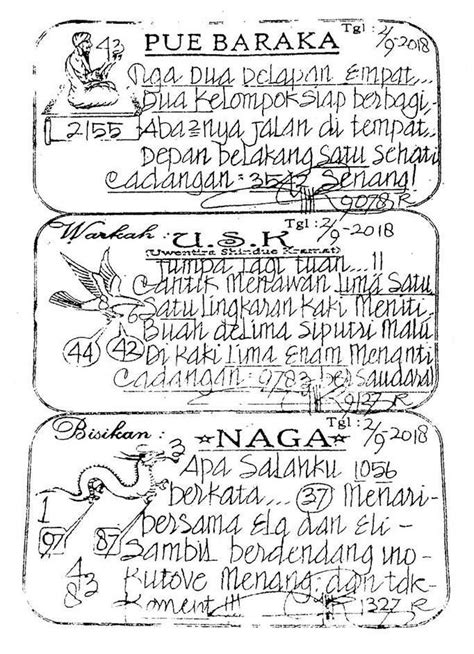 Tgl : 2/9-2018
PUE BARAKA
43
Tiga Dua Delapan Empat...
Dua Kelompok Siap berbagi,
2155
Aba2nya jalan di tempat..
Depan belakang satu sehati
Cadangan : 3542 Senang!
9078 R
Warkah :
Tgl : 2/9-2018
U.S.K
(Uwentira Shindue Kramat)
Jumpa lagi tuan...!!
Cantik Menawan Lima Satu
Satu Lingkaran Kaki Meniti
6
Buah delima siputri Malu
44 42
Di kaki Lima Enam Menanti
Cadangan : 9783 berSaudara
9127 R
Bisikan :
Tgl : 2/9-2018
NAGA
3
Apa Salahku 1056
berkata... 37 Menari-
1
bersama Elg dan Eli -
97 87
Sambil berdendang ino-
4 3
8
Kutove Menang dan tdk-
Koment !!!
1327 R